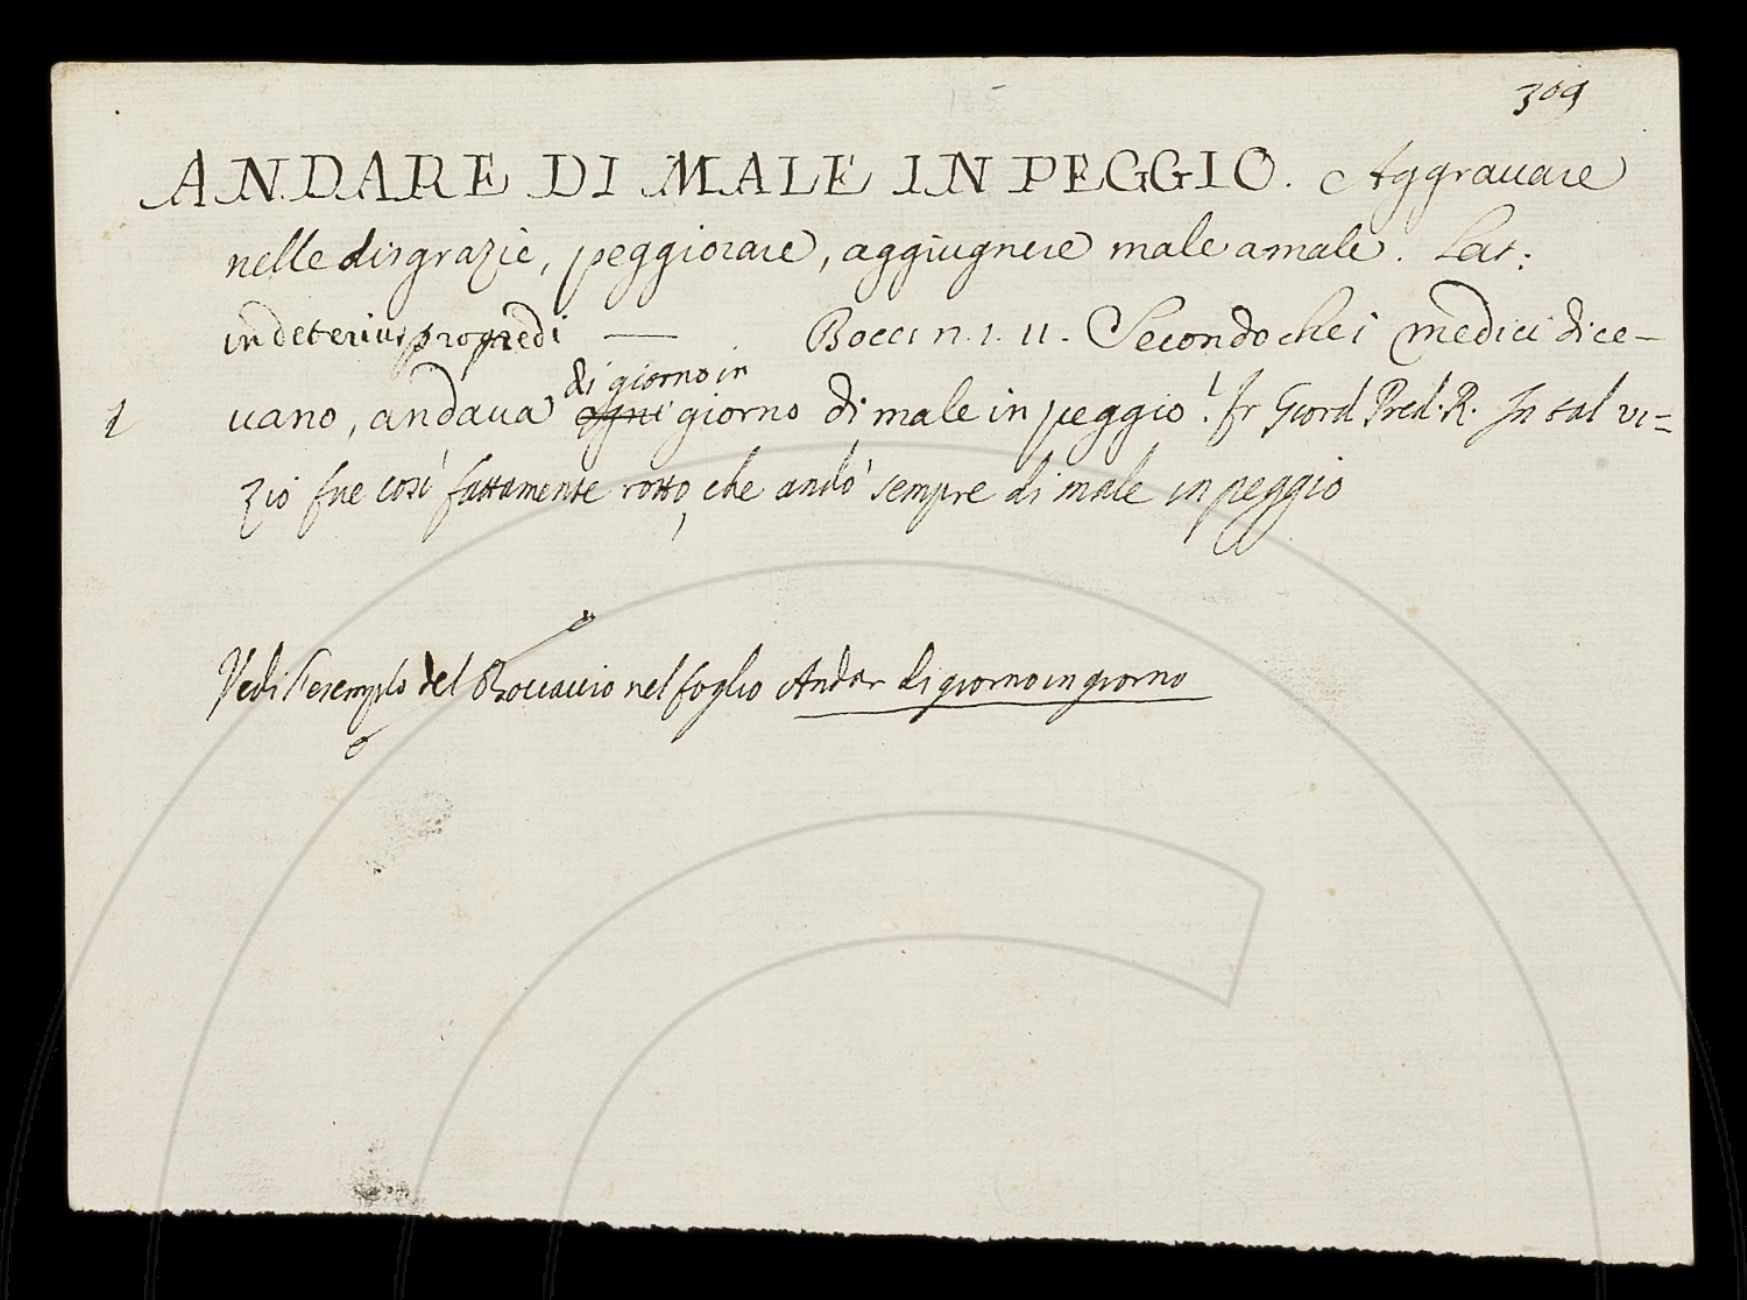 309
ANDARE DI MALE IN PEGGIO. Aggrauare
nelle disgrazie, peggiorare, aggiugnere male a male. Lat:
in deterius progredi — Bocc: n. 1. 11. Secondo che i medici dice-
di giorno in
1 uano, andaua ogni giorno di male in peggio. fr Giord Pred. R. In tal vi=
zio fue così fattamente rotto, che andò sempre di male in peggio
Vedi l'esemplo del Boccaccio nel foglio Andar di giorno in giorno